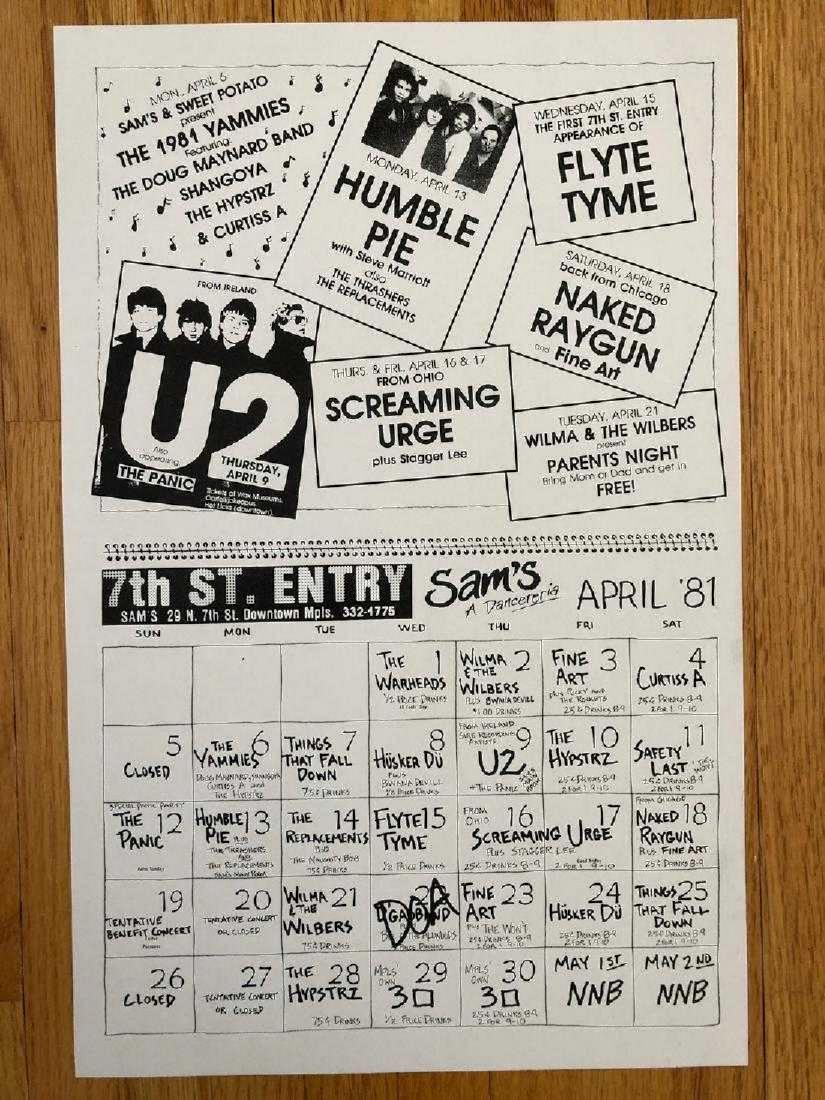 MON., APRIL 6
SAM'S & SWEET POTATO
present
THE 1981 YAMMIES
Featuring:
THE DOUG MAYNARD BAND
SHANGOYA
THE HYPSTRZ
& CURTISS A
MONDAY, APRIL 13
HUMBLE
PIE
with Steve Marriott
also
THE THRASHERS
THE REPLACEMENTS
WEDNESDAY, APRIL 15
THE FIRST 7TH ST. ENTRY
APPEARANCE OF
FLYTE
TYME
SATURDAY, APRIL 18
back from Chicago
NAKED
RAYGUN
and Fine Art
FROM IRELAND
U2
Also
appearing
THE PANIC
THURSDAY,
APRIL 9
Tickets at Wax Museums,
Hot Licks (downtown)
THURS. & FRI., APRIL 16 & 17
FROM OHIO
SCREAMING
URGE
plus Stagger Lee
TUESDAY, APRIL 21
WILMA & THE WILBERS
present
PARENTS NIGHT
Bring Mom or Dad and get in
FREE!
7th ST. ENTRY
SAM'S 29 N. 7th St. Downtown Mpls. 332-1775
Sam's
A Danceteria
APRIL '81
SUN MON TUE WED THU FRI SAT
1
THE
WARHEADS
1/2 PRICE DRINKS
2
WILMA
& THE
WILBERS
PLUS BWANA DEVILL
$1.00 DRINKS
3
FINE
ART
25¢ DRINKS 8-9
4
CURTISS A
25¢ DRINKS 8-9
2 FOR 1 9-10
5
CLOSED
6
THE
YAMMIES
DOUG MAYNARD, SHANGOYA
CURTISS A AND
THE HYPSTRZ
7
THINGS
THAT FALL
DOWN
75¢ DRINKS
8
HÜSKER DÜ
PLUS
BWANA DEVILL
1/2 PRICE DRINKS
9
FROM IRELAND
ARTISTS
U2
+ THE PANIC
10
THE
HYPSTRZ
25¢ DRINKS 8-9
2 FOR 1 9-10
11
SAFETY
LAST
25¢ DRINKS 8-9
2 FOR 1 9-10
12
SPECIAL PANIC PARTY
THE
PANIC
13
HUMBLE
PIE
THE THRASHERS
THE REPLACEMENTS
14
THE
REPLACEMENTS
PLUS
75¢ DRINKS
15
FLYTE
TYME
1/2 PRICE DRINKS
16 17
FROM
OHIO
SCREAMING URGE
PLUS STAGGER LEE
25¢ DRINKS 8-9
2 FOR 1 9-10
18
FROM CHICAGO
NAKED
RAYGUN
PLUS FINE ART
25¢ DRINKS 8-9
19
TENTATIVE
BENEFIT CONCERT
20
TENTATIVE CONCERT
OR CLOSED
21
WILMA
& THE
WILBERS
75¢ DRINKS
DOA
PRICE DRINKS
23
FINE
ART
THE WON'T
25¢ DRINKS 8-9
2 FOR 1 9-10
24
HÜSKER DÜ
25¢ DRINKS 8-9
2 FOR 1 9-10
25
THINGS
THAT FALL
DOWN
25¢ DRINKS 8-9
2 FOR 1 9-10
26
CLOSED
27
TENTATIVE CONCERT
OR CLOSED
28
THE
HYPSTRZ
75¢ DRINKS
29
MPLS
OWN
3□
1/2 PRICE DRINKS
30
MPLS
OWN
3□
25¢ DRINKS 8-9
2 FOR 9-10
MAY 1ST
NNB
MAY 2ND
NNB